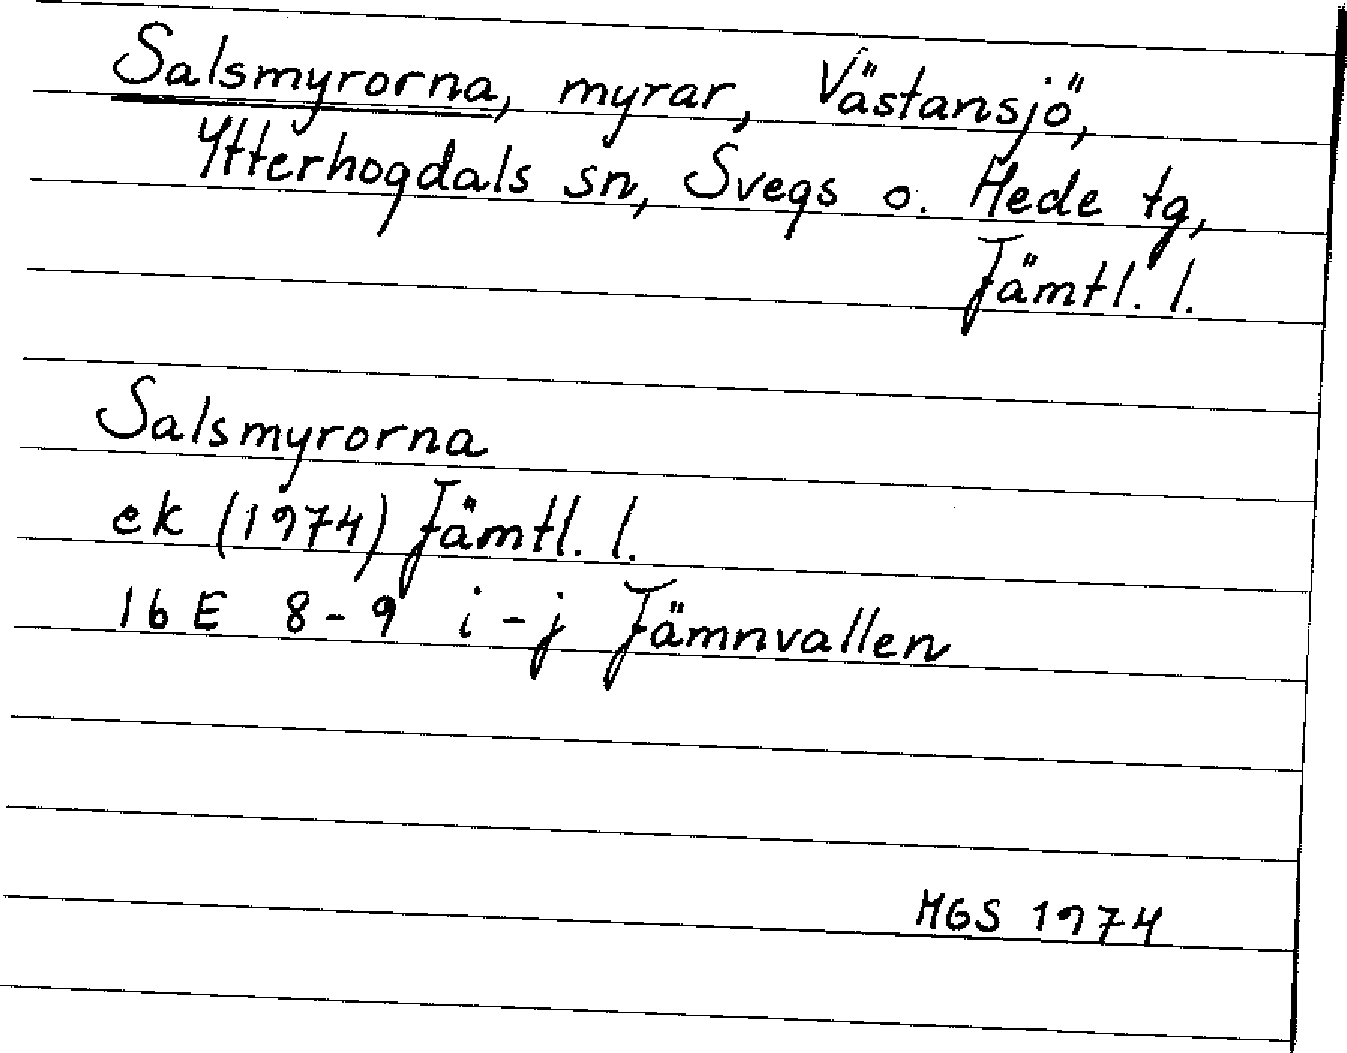 Salsmyrorna, myrar, Västansjö,
Ytterhogdals sn, Svegs o. Hede tg,
Jämtl. l.
Salsmyrorna
ek (1974) Jämtl. l.
16E 8-9 i-j Jämnvallen
MGS 1974